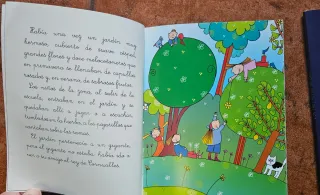 Había una vez un jardín muy
hermoso, cubierto de suave césped,
grandes flores y doce melocotoneros que
en primavera se llenaban de capullos
rosados y en verano, de sabrosos frutos.
Los niños de la zona, al salir de la
escuela, entraban en el jardín y se
quedaban allí a jugar o a escuchar
tumbados en la hierba a los pajarillos que
cantaban sobre las ramas.
El jardín pertenecía a un gigante,
pero el gigante no estaba, había ido a
ver a su amigo el rey de Cornualles.